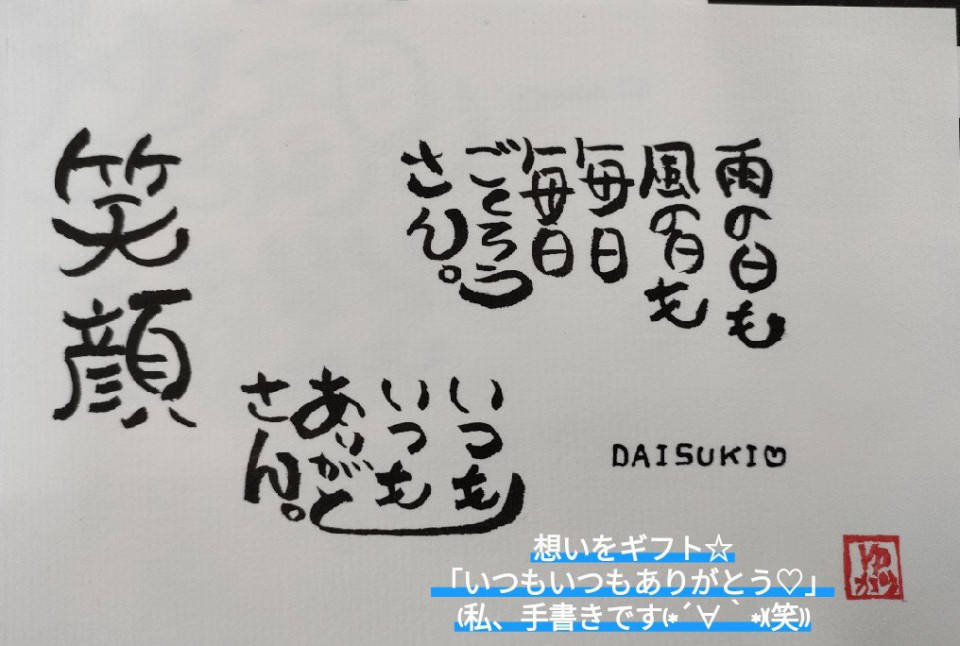 雨の日も
風の日も
毎日
毎日
ごくろう
さん。
いつも
いつも
ありがと
さん。
笑顔
DAISUKI♡
想いをギフト☆
「いつもいつもありがとう♡」
(私、手書きです(*´∀｀*)(笑))